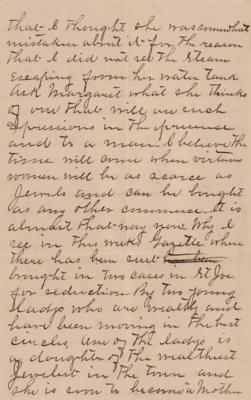 that I thought she was somewhat
mistaken about it for the reason
that I did not see the steam
escaping from her water tank
Ask Margaret what she thinks
of one that will use such
expressions in the presence
and to a man. I believe the
time will come when virtuous
women will be as scarce as
Jewels and can be bought
as any other commerce. it is
almost that way now. Why I
see in this weeks Gazette where
there has been suit
brought in two cases in St Joe
for seduction. By two young
ladys who are wealthy and
have been moving in the best
circles, one of the ladys is
a daughter of the wealthiest
Jeweler in the town and
she is soon to become a Mother